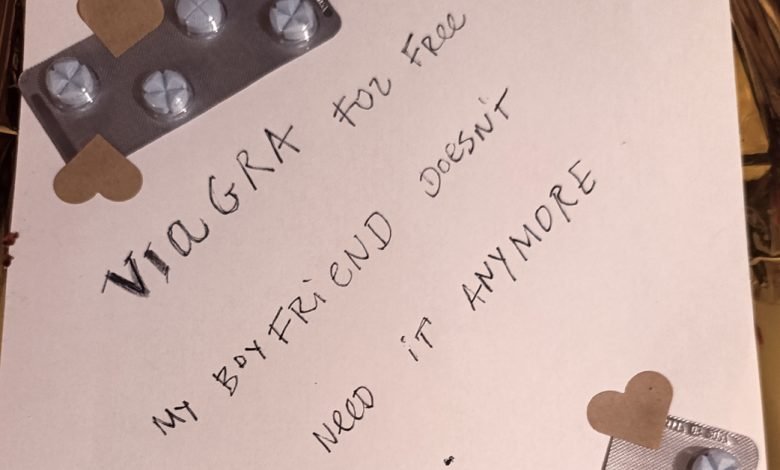 VIaGRA FOR FRee
MY BOYFRiEND DOesN'T
NeeD iT ANYMORE